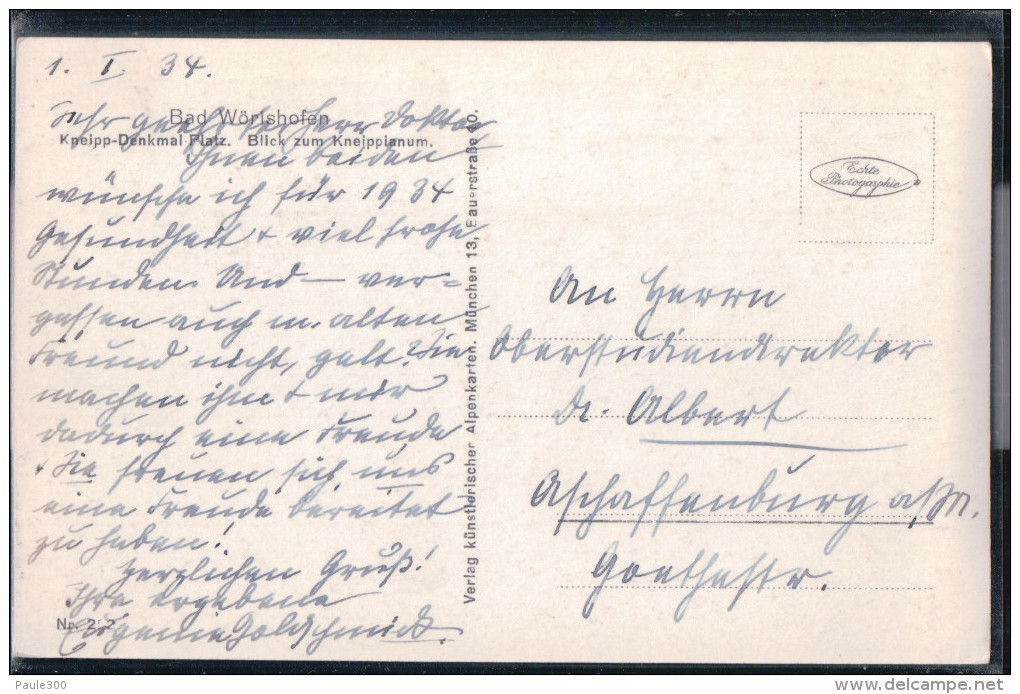 1. I. 34.
Bad Wörishofen
Kneipp-Denkmal Platz. Blick zum Kneippianum.
Sehr geehrter Herr Doktor
Ihnen beiden
wünsche ich für 1934
Gesundheit + viel frohe
Stunden. Und — ver=
gessen auch m. alten
Freund nicht, gelt? Sie
machen ihm + mir
dadurch eine Freude
+ Sie freuen sich, uns
eine Freude bereitet
zu haben!
Herzlichen Gruß!
Ihre ergebene
Eugenie Goldschmidt.
Nr. 2
Verlag künstlerischer Alpenkarten. München 13, Bauerstraße
Echte
Photographie
An Herrn
Oberstudiendirektor
Dr. Albert
Aschaffenburg a/M.
Goethestr.
Paule300